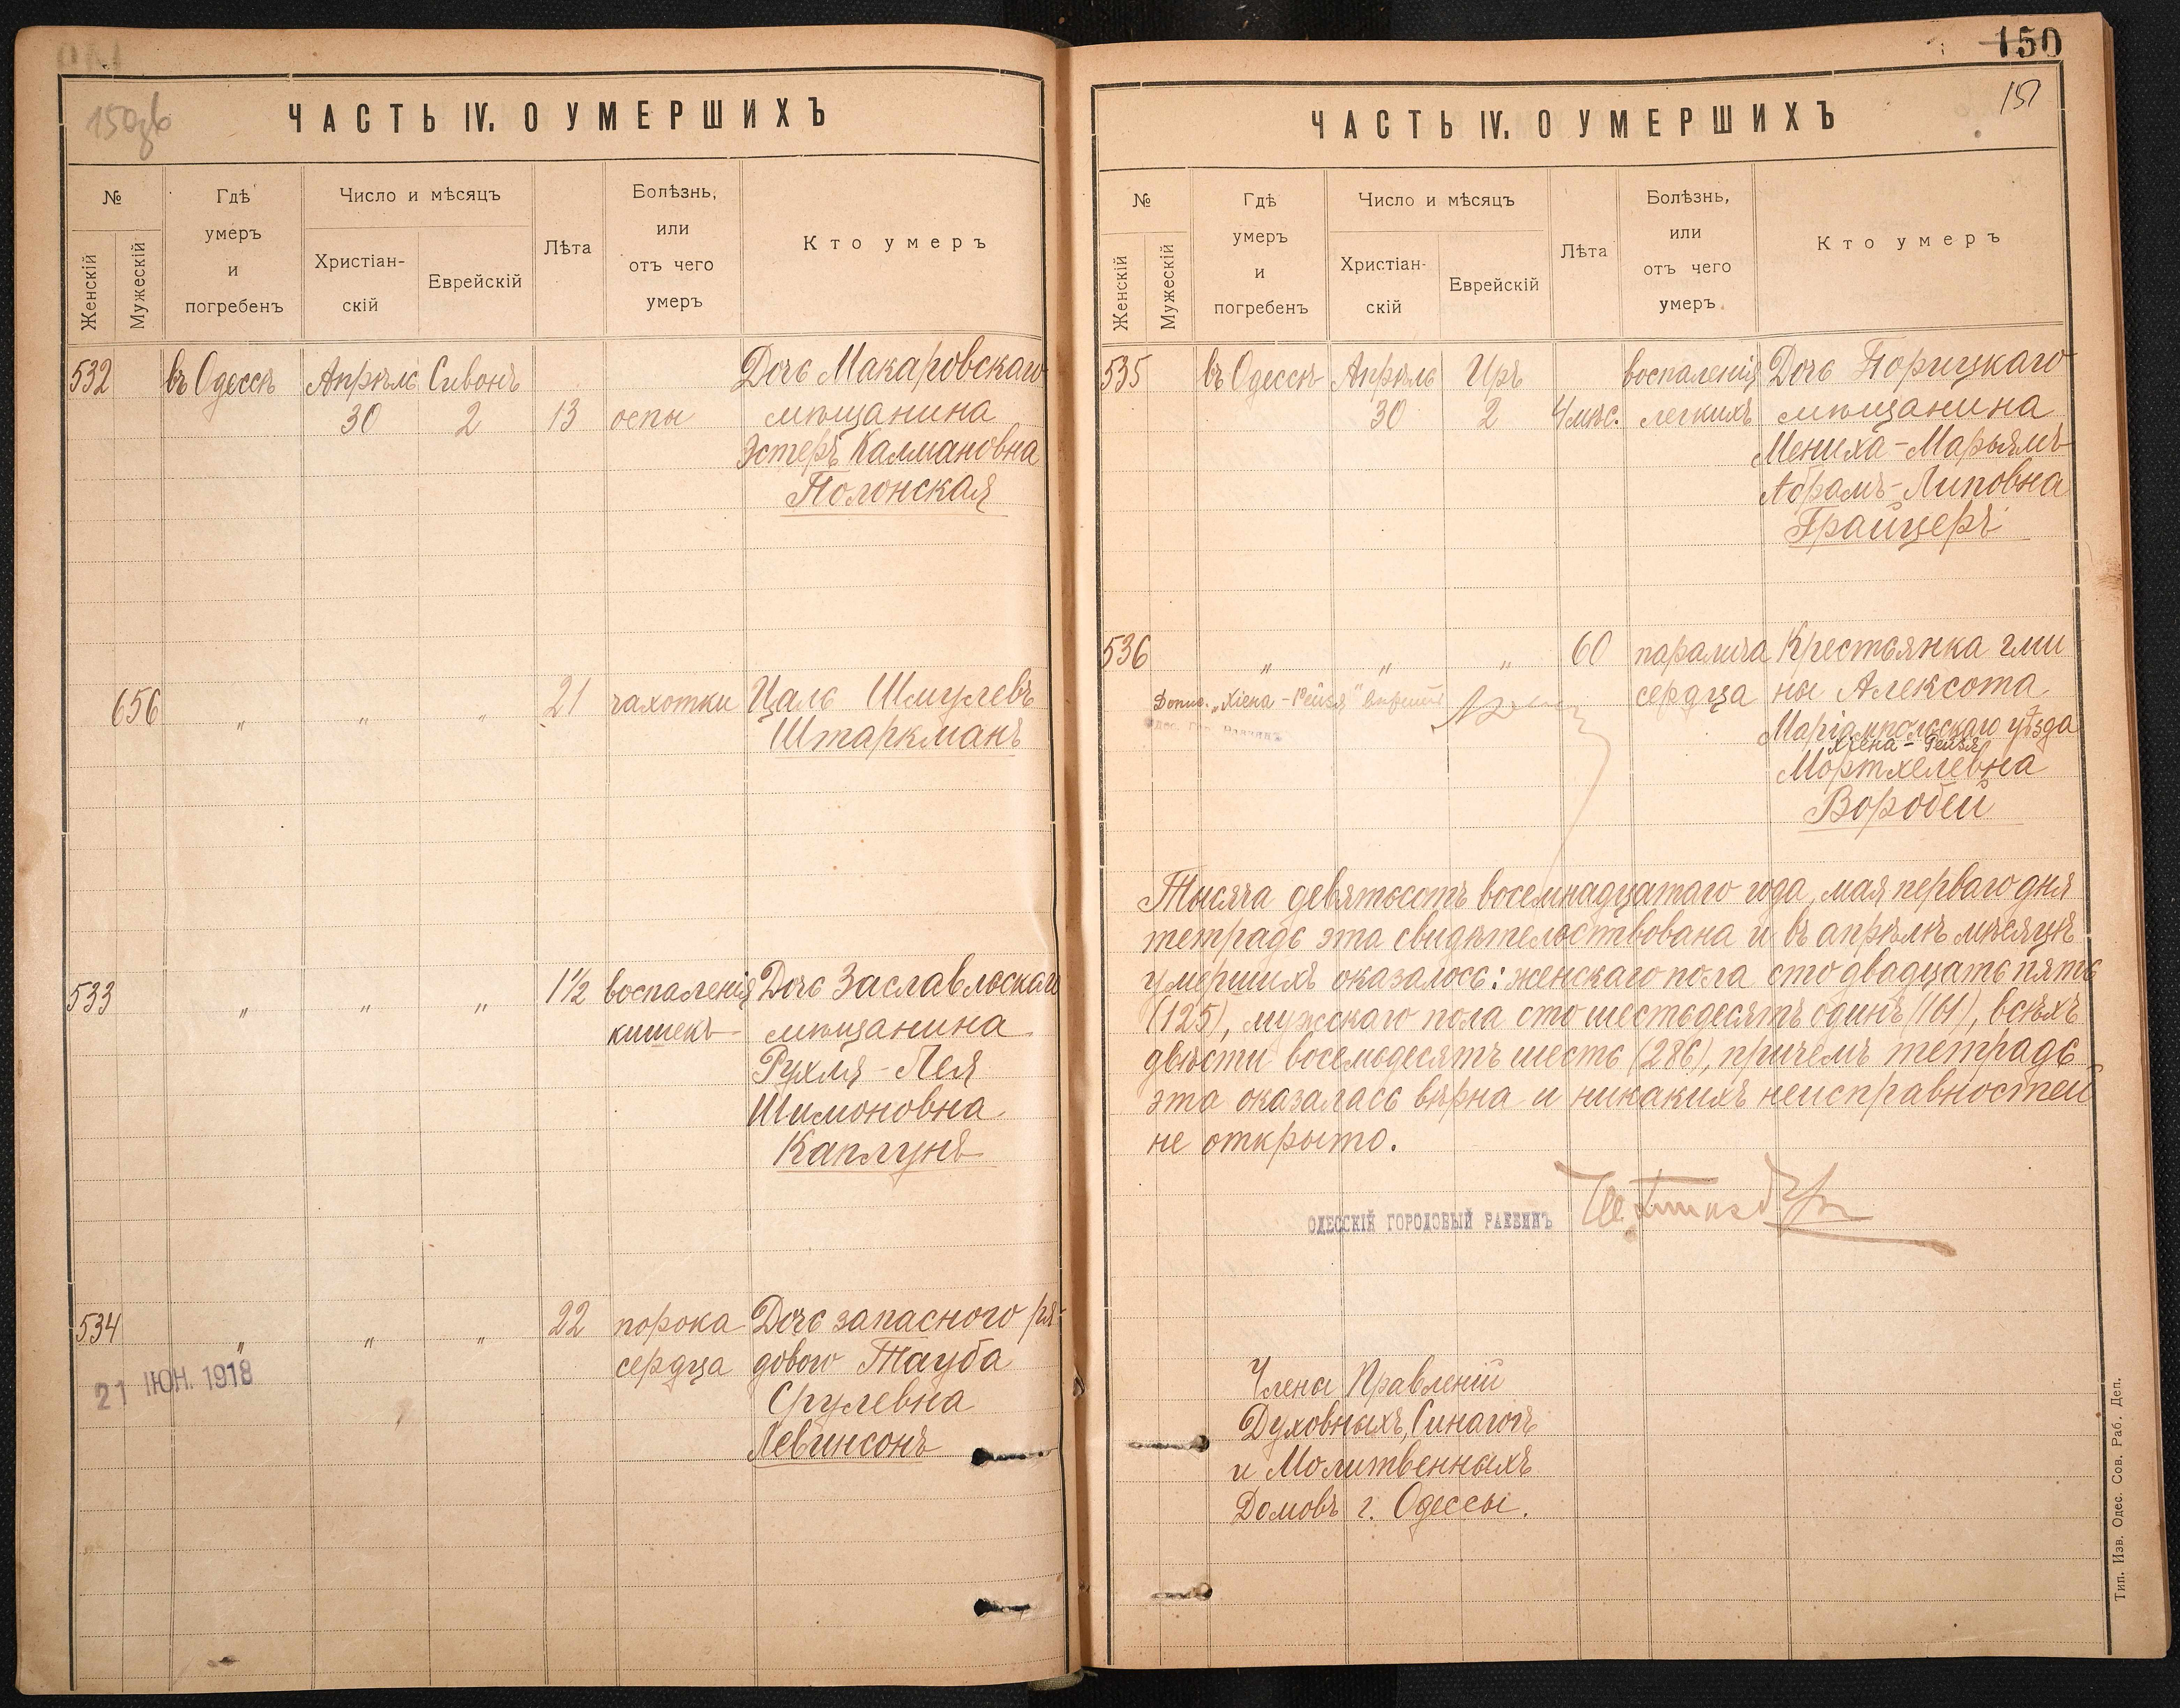 150об
ЧАСТЬ IV. О УМЕРШИХЪ
№
Женскій
Мужескій
Гдѣ
умеръ
и
погребенъ
Число и мѣсяцъ
Христіан-
скій
Еврейскій
Лѣта
Болѣзнь,
или
отъ чего
умеръ
Кто умеръ
532 въ Одессѣ Апрѣль Сивонъ Дочь Макаровскаго
30 2 13 оспы мѣщанина
Эстеръ Калмановна
Полонская
656 " " " 21 чахотки Цаль Шмулевъ
Штаркманъ
533 " " " 1½ воспаленія Дочь Заславльскаго
кишекъ мѣщанина
Рухля-Лея
Шимоновна
Каплунъ
534 " " " 22 порока Дочь запаснаго ря-
сердца дового Тауба
Срулевна
Левинсонъ
21 ІЮН. 1918
150
151
ЧАСТЬ IV. О УМЕРШИХЪ
№
Женскій
Мужескій
Гдѣ
умеръ
и
погребенъ
Число и мѣсяцъ
Христіан-
скій
Еврейскій
Лѣта
Болѣзнь,
или
отъ чего
умеръ
Кто умеръ
535 въ Одессѣ Апрѣль Иръ воспаленія Дочь Порицкаго
30 2 4 мѣс. легкихъ мѣщанина
Мениха-Марьямъ
Абрамъ-Липовна
Грайцеръ
536 " " " 60 паралича Крестьянка гми
сердца ны Алексота
Маріампольскаго уѣзда
Хіена-Рейзя
Мортхелевна
Воробей
Допис. „Хіена-Рейзя"
Одес. Гор. Раввинъ
Тысяча девятьсотъ восемнадцатаго года, мая перваго дня
тетрадь эта свидѣтельствована и въ апрѣлѣ мѣсяцѣ
умершихъ оказалось: женскаго пола сто двадцать пять
(125), мужскаго пола сто шестьдесятъ одинъ (161), всѣхъ
двѣсти восемьдесятъ шесть (286), причемъ тетрадь
эта оказалась вѣрна и никакихъ неисправностей
не открыто.
ОДЕССКІЙ ГОРОДОВЫЙ РАВВИНЪ
Члены Правленій
Духовныхъ, Синагогъ
и Молитвенныхъ
Домовъ г. Одессы.
Тип. Изв. Одес. Сов. Раб. Деп.